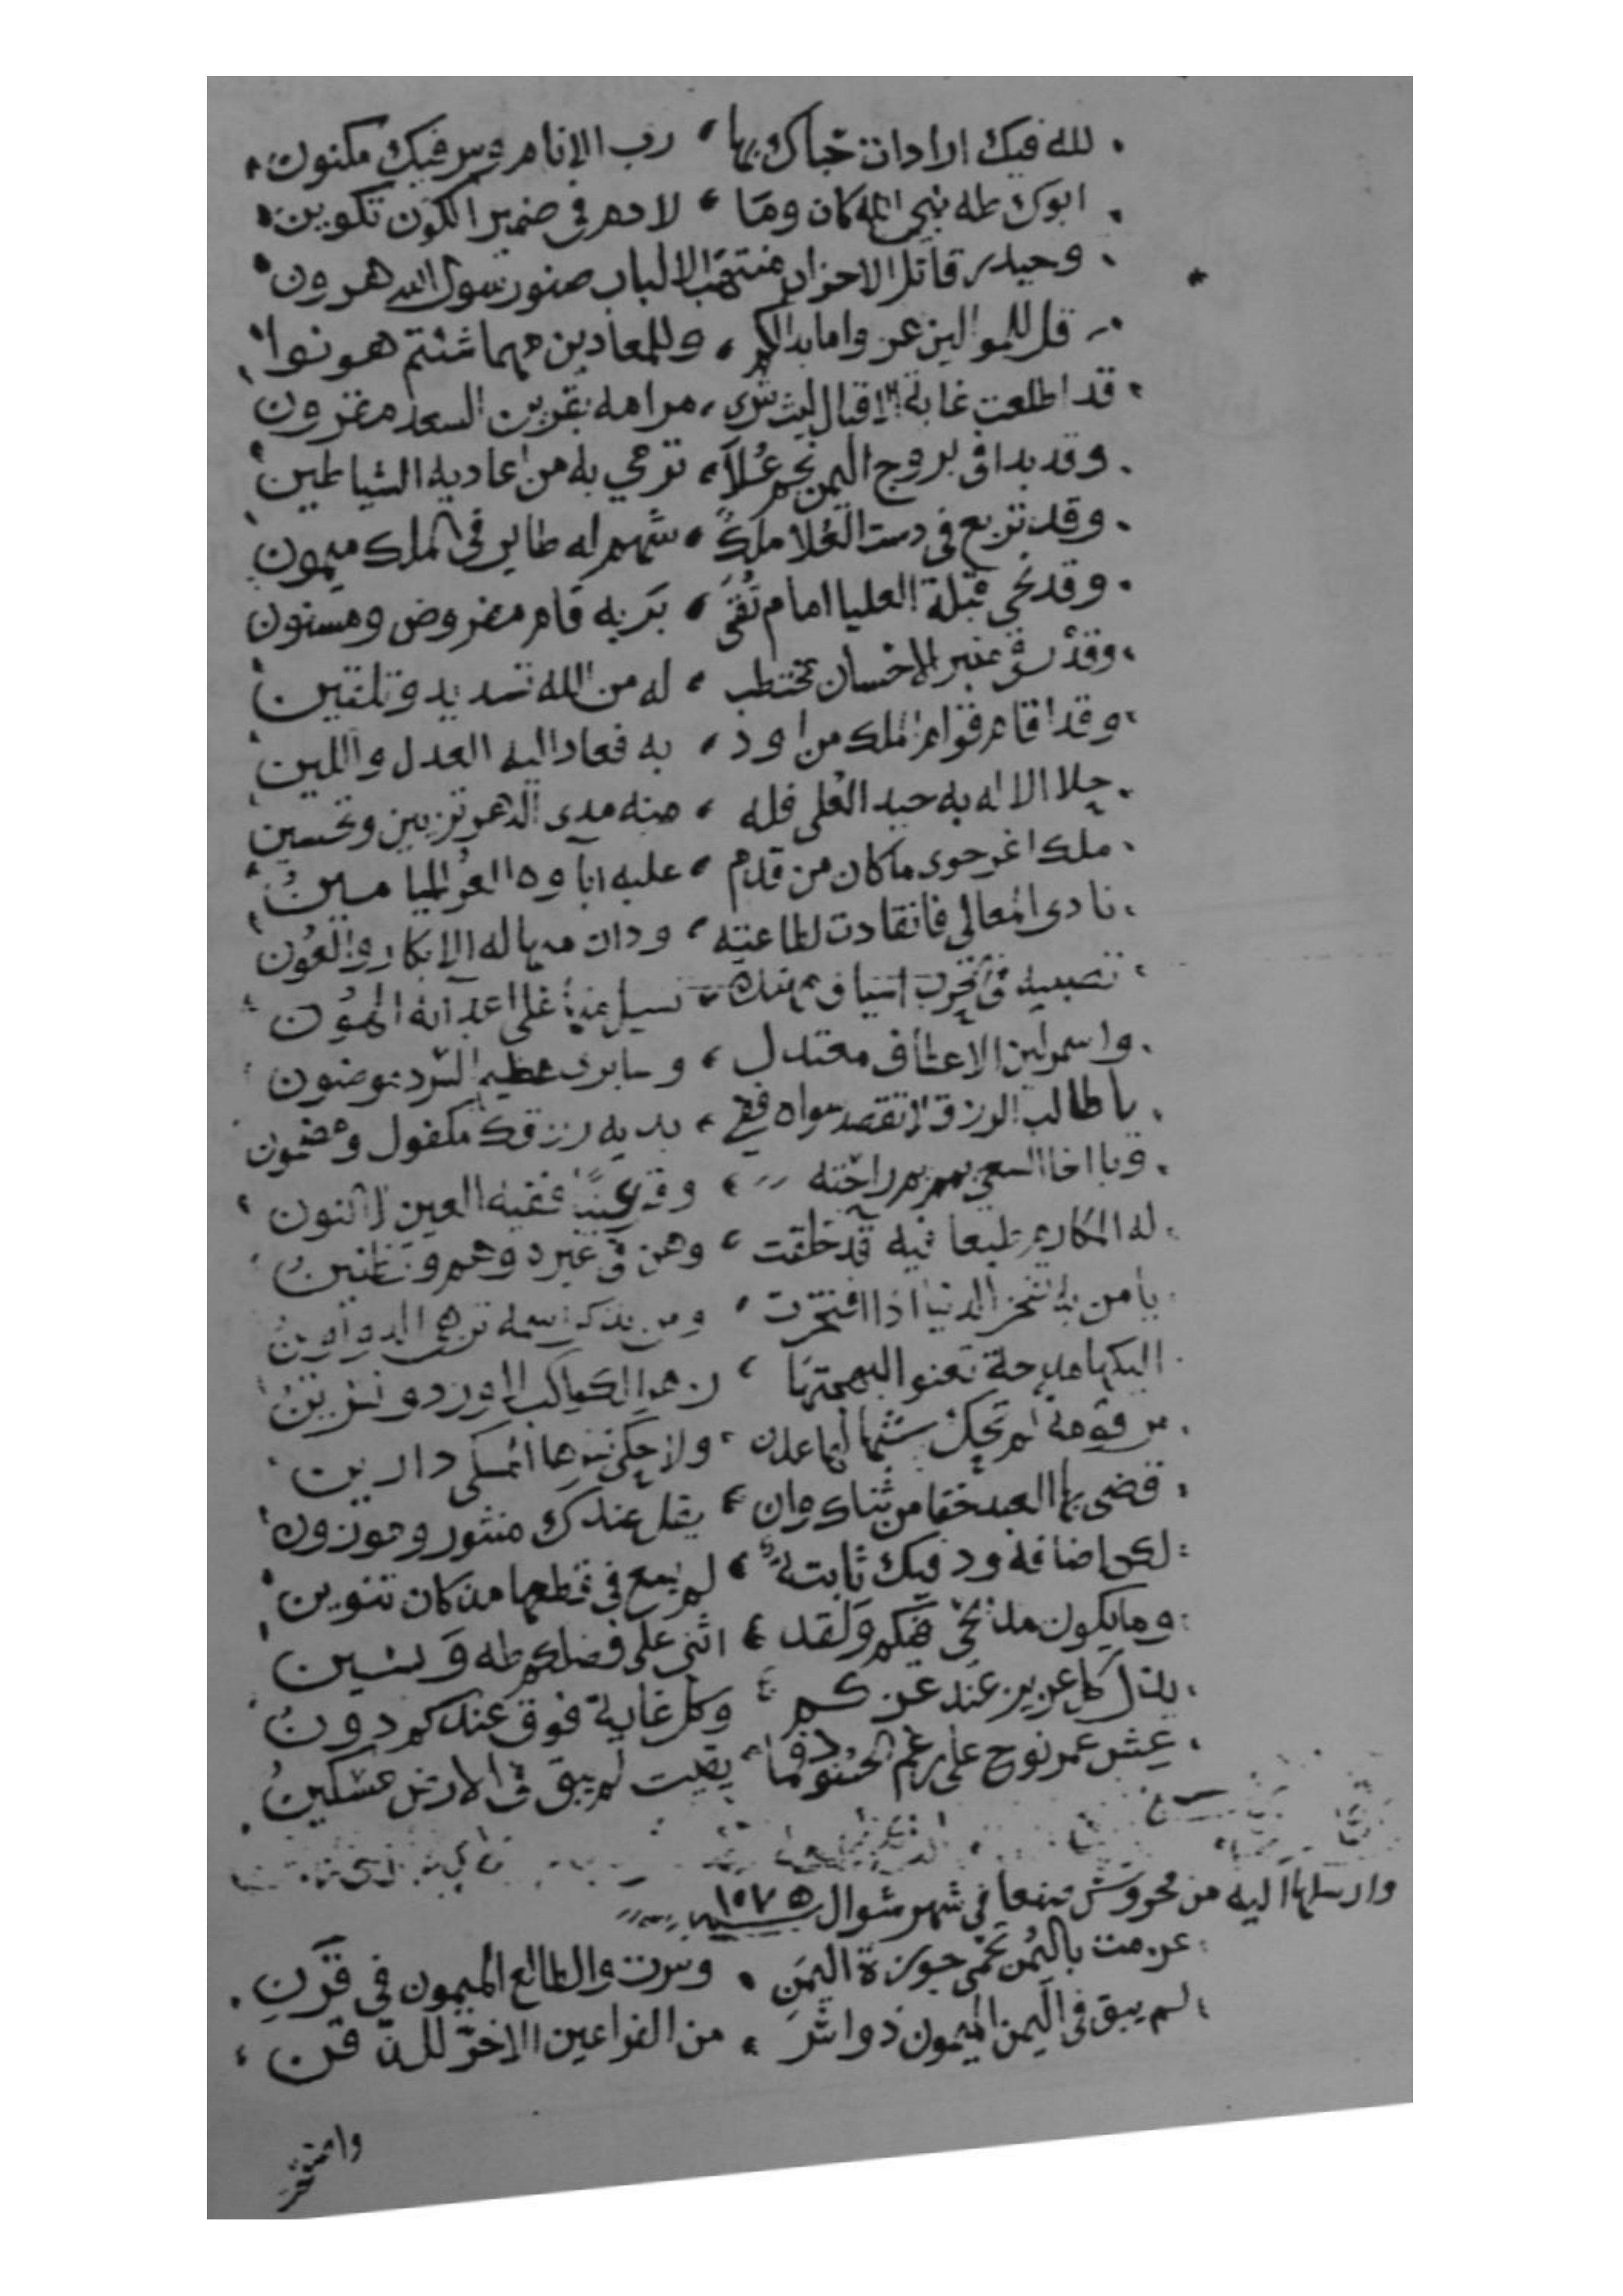 لله فيك ارادات حباك بها ، رب الانام وسر فيك مكنون
ابوك طه نبي الله كان وما ، لادم في ضمير الكون تكوين
وحيدر قاتل الاحزاب منتهب الالباب صنو رسول الله هرون
قل للموالين عزوا ما بدا لكم ، وللمعادين مهما شئتم هونوا
قد اطلعت غابة الاقبال ليث شرى ، مرامه بقرين السعد مقرون
وقد بدا في بروج اليمن نجم عُلاً ، ترمي به من اعاديه الشياطين
وقد تربع في دست العُلا ملكٌ ، شهم له طاير في الملك ميمون
وقد نحى قبلة العليا امام تُقىً ، بر به قام مفروض ومسنون
وقد رقى منبر الاحسان مختطب ، له من الله تسديد وتلقين
وقد اقام قوام الملك من اود ، به فعاد اليه العدل واللين
حلا الاله به جيد العُلى فله ، منه مدى الدهر تزيين وتحسين
ملك اغر حوى ما كان من قدم ، عليه اباوه الغر الميامين
نادى المعالي فانقادت لطاعته ، ودان منها له الابكار والعُون
تصبيه في الحرب اسياف مهندة ، تسيل منها على اعدآئه الهُون
واسمر لين الاعطاف معتدل ، وسابري عظيم السرد موضون
يا طالب الرزق لا تقصد سواه ففي ، يديه رزقك مكفول ومضمون
ويا اخا السعي يمم يم راحته ، وقد عينًا ففيه العين والنون
له المكارم طبعا فيه قد خلقت ، وهن في غيره وهم وتظنينُ
يا من به تفخر الدنيا اذا افتخرت ، ومن بذكر اسمه تزهى الدواوين
اليكها مدحة تعنو لبهجتها ، زهر الكواكب لا ورد ونسرين
مرقومة لم تحك شبها لها عدن ، ولا حكى نشرها المسكي دارين
قضى بها العبد حقا من ثناك وان ، يقل عندك منثور وموزون
لكن اضافة ود فيك ثابتةٌ ، لم يمح في قطعها مذ كان تنوين
وما يكون مدحي فيكم ولقد ، اثنى على فضلكم طه ويسين
يذل كل عزيز عند عزكم ، وكل غاية فوق عندكم دون
عش عمر نوح على رغم الحسود فما ، بقيت لم يبق في الارض مسكين
وارسلها اليه من محروس صنعا في شهر شوال سنة ١٠٧٥
عزمت باليُمن تحمي حوزة اليمن ، وسرت والطالع الميمون في قَرَنِ
لم يبق في اليمن الميمون ذو اشَر ، من الفراعين الا خر للذقن